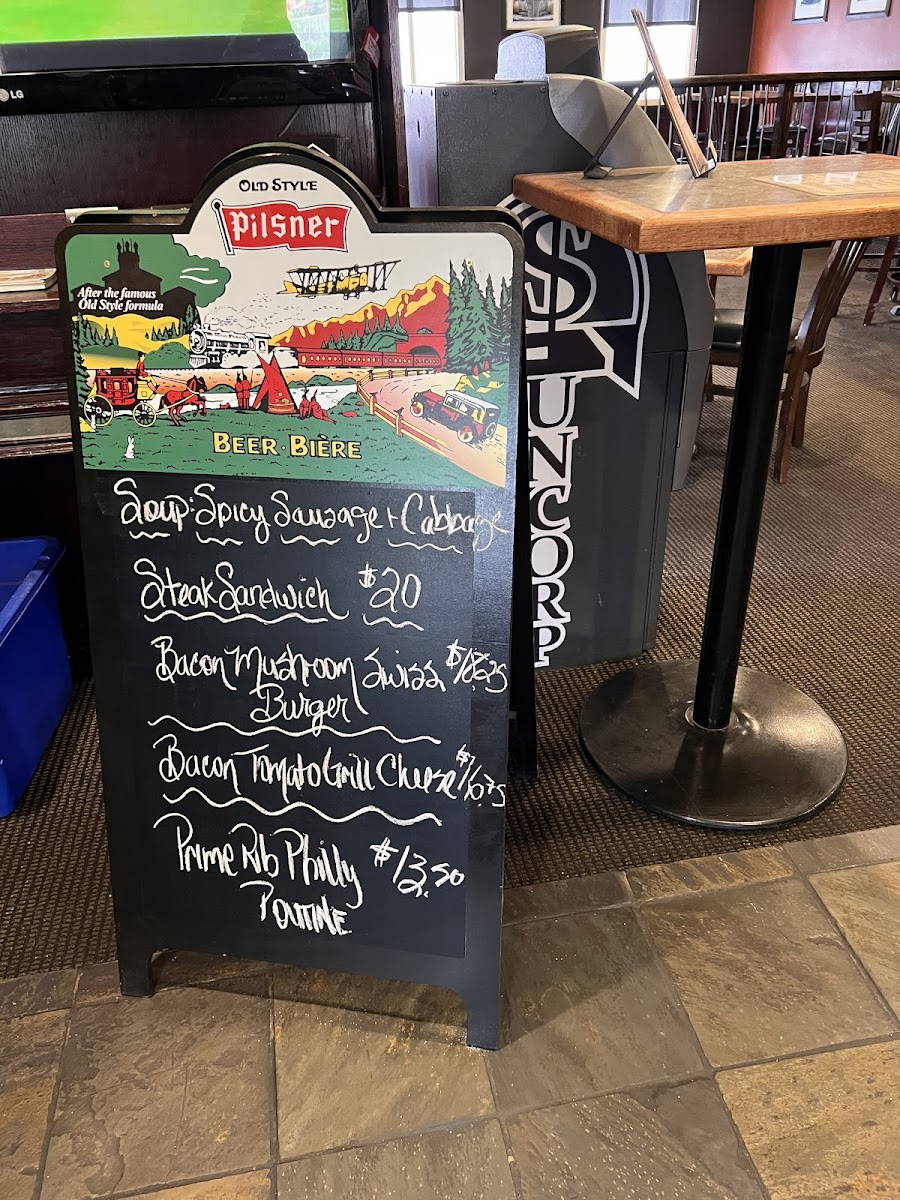 LG
OLD STYLE
Pilsner
After the famous
Old Style formula
BEER · BIÈRE
Soup: Spicy Sausage + Cabbage
Steak Sandwich $20
Bacon Mushroom Swiss $18.25
Burger
Bacon Tomato Grill Cheese $16.75
Prime Rib Philly $13.50
Poutine
$
UNCORP